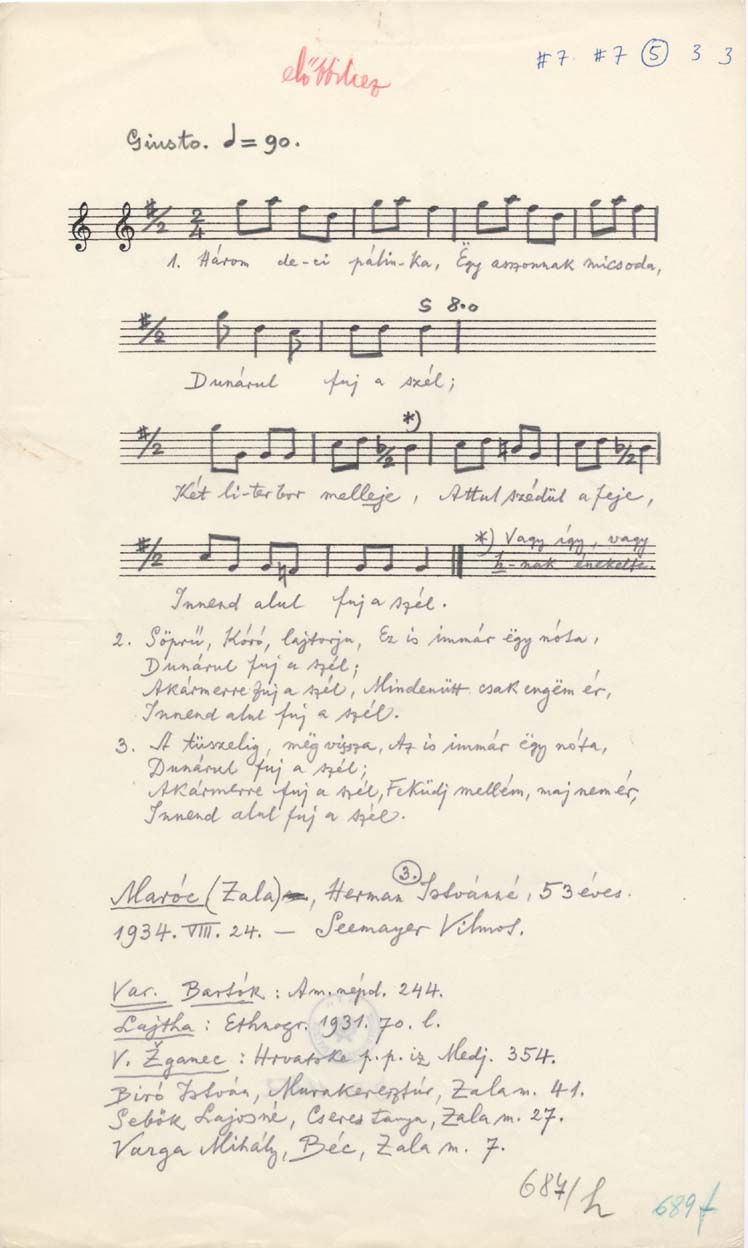 előbbihez
#7 #7 5 3 3
Giusto. = 90.
2/4
1. Három de-ci pálin-ka, Ëgy asszonnak micsoda,
S 8.0
Dunárul fuj a szél;
*)
Két li-ter bor melleje, Attul szédül a feje,
*) Vagy így, vagy
h-nak énekelte.
Innend alul fuj a szél.
2. Söprű, Kóró, lajtorja, Ez is immár ëgy nóta,
Dunárul fuj a szél;
Akármerre fuj a szél, Mindenütt csak engëm ér,
Innend alul fuj a szél.
3. A tüszelig, mëg vissza, Az is immár ëgy nóta,
Dunárul fuj a szél;
Akármerre fuj a szél, Feküdj mellém, maj nem ér,
Innend alul fuj a szél.
Maróc (Zala), Herman 3. Istvánné, 53 éves.
1934. VIII. 24. — Seemayer Vilmos.
Var. Bartók: Am. népd. 244.
Lajtha: Ethnogr. 1931. 70. l.
V. Žganec: Hrvatske p.p. iz Medj. 354.
Biró István, Murakeresztúr, Zala m. 41.
Sebők Lajosné, Cseres tanya, Zala m. 27.
Varga Mihály, Béc, Zala m. 7.
687/h
689f